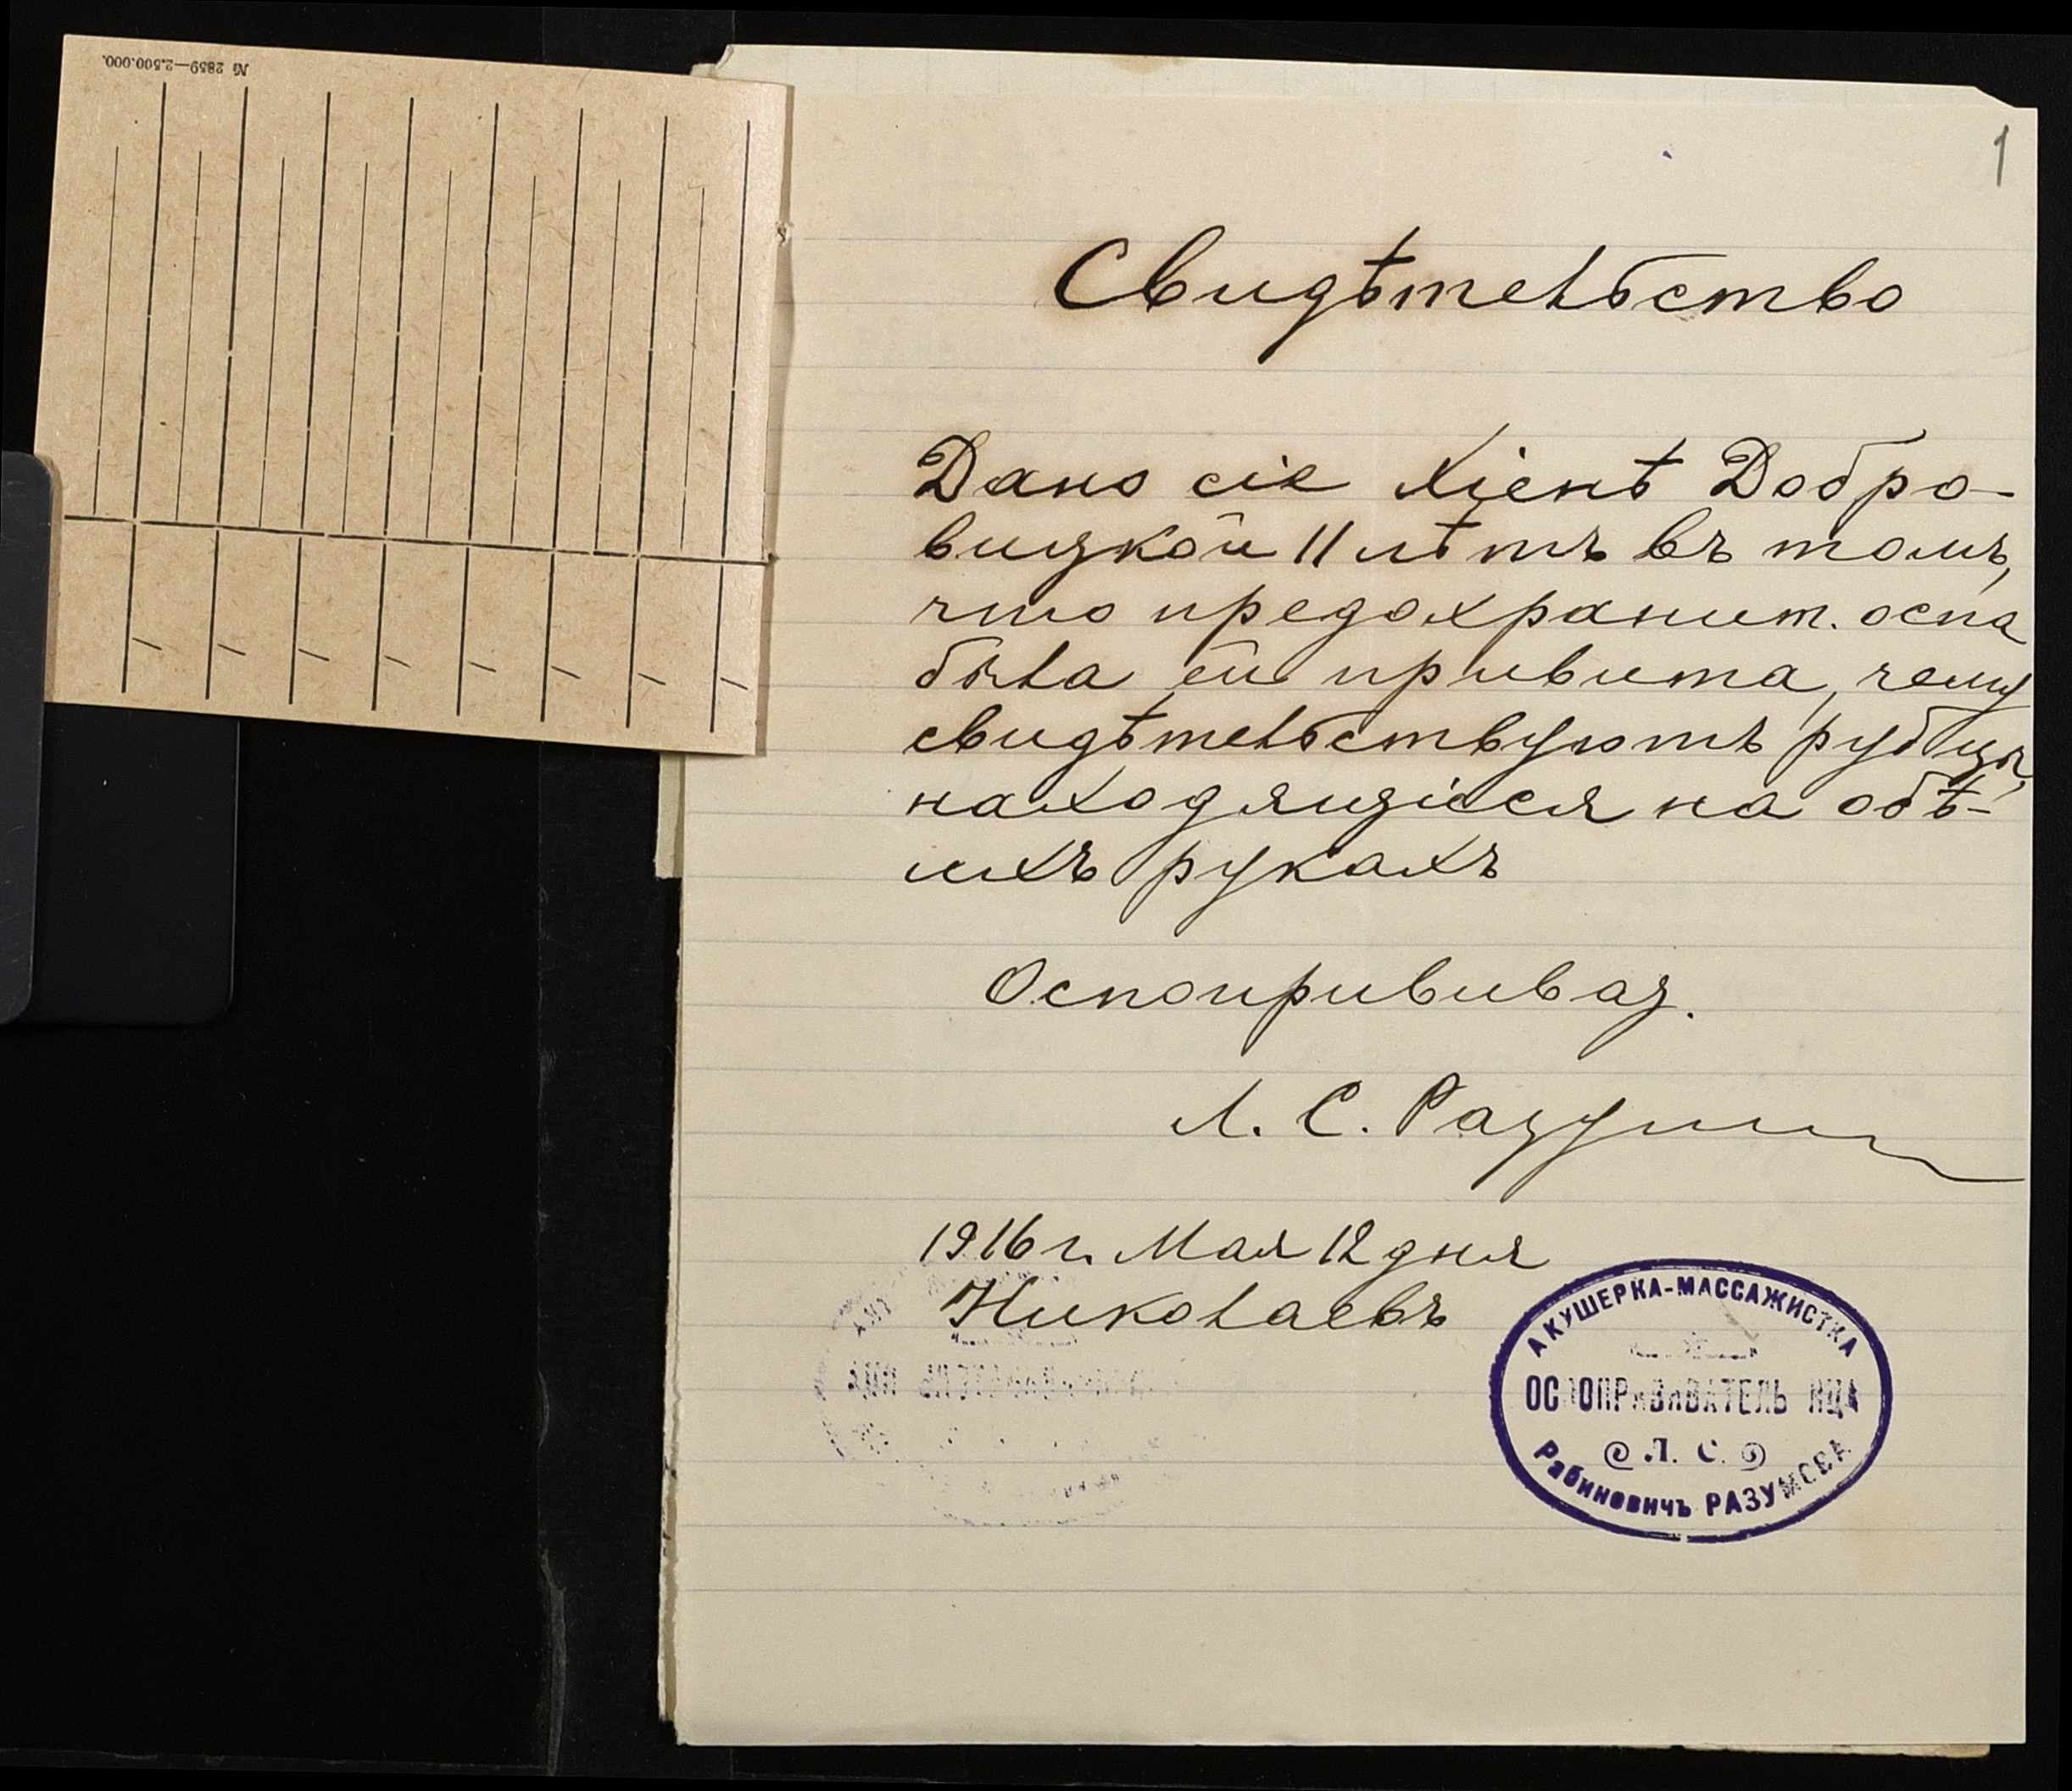 № 2859—2.500.000.
1
Свидѣтельство
Дано сіе Хіенѣ Добро-
вицкой 11 лѣтъ въ томъ,
что предохранит. оспа
была ей привита, чему
свидѣтельствуютъ рубцы,
находящіеся на обѣ-
ихъ рукахъ
Оспопрививат.
Л. С. Разум
1916 г. Мая 12 дня
Николаевъ
АКУШЕРКА-МАССАЖИСТКА
ОСПОПРИВИВАТЕЛЬНИЦА
Л. С.
Рабиновичъ РАЗУМОВА